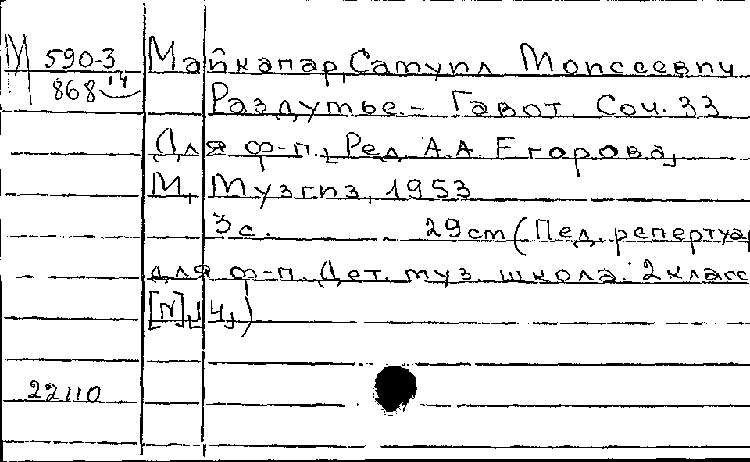 М 590-3 Майкапар, Самуил Моисеевич
868 14 Раздумье. - Гавот Соч. 33
Для ф-п., Ред. А.А. Егорова,
М., Музгиз, 1953
3 с. 29 cm (Пед. репертуар
для ф-п. Дет. муз. школа. 2 класс
[N], 4,)
22110